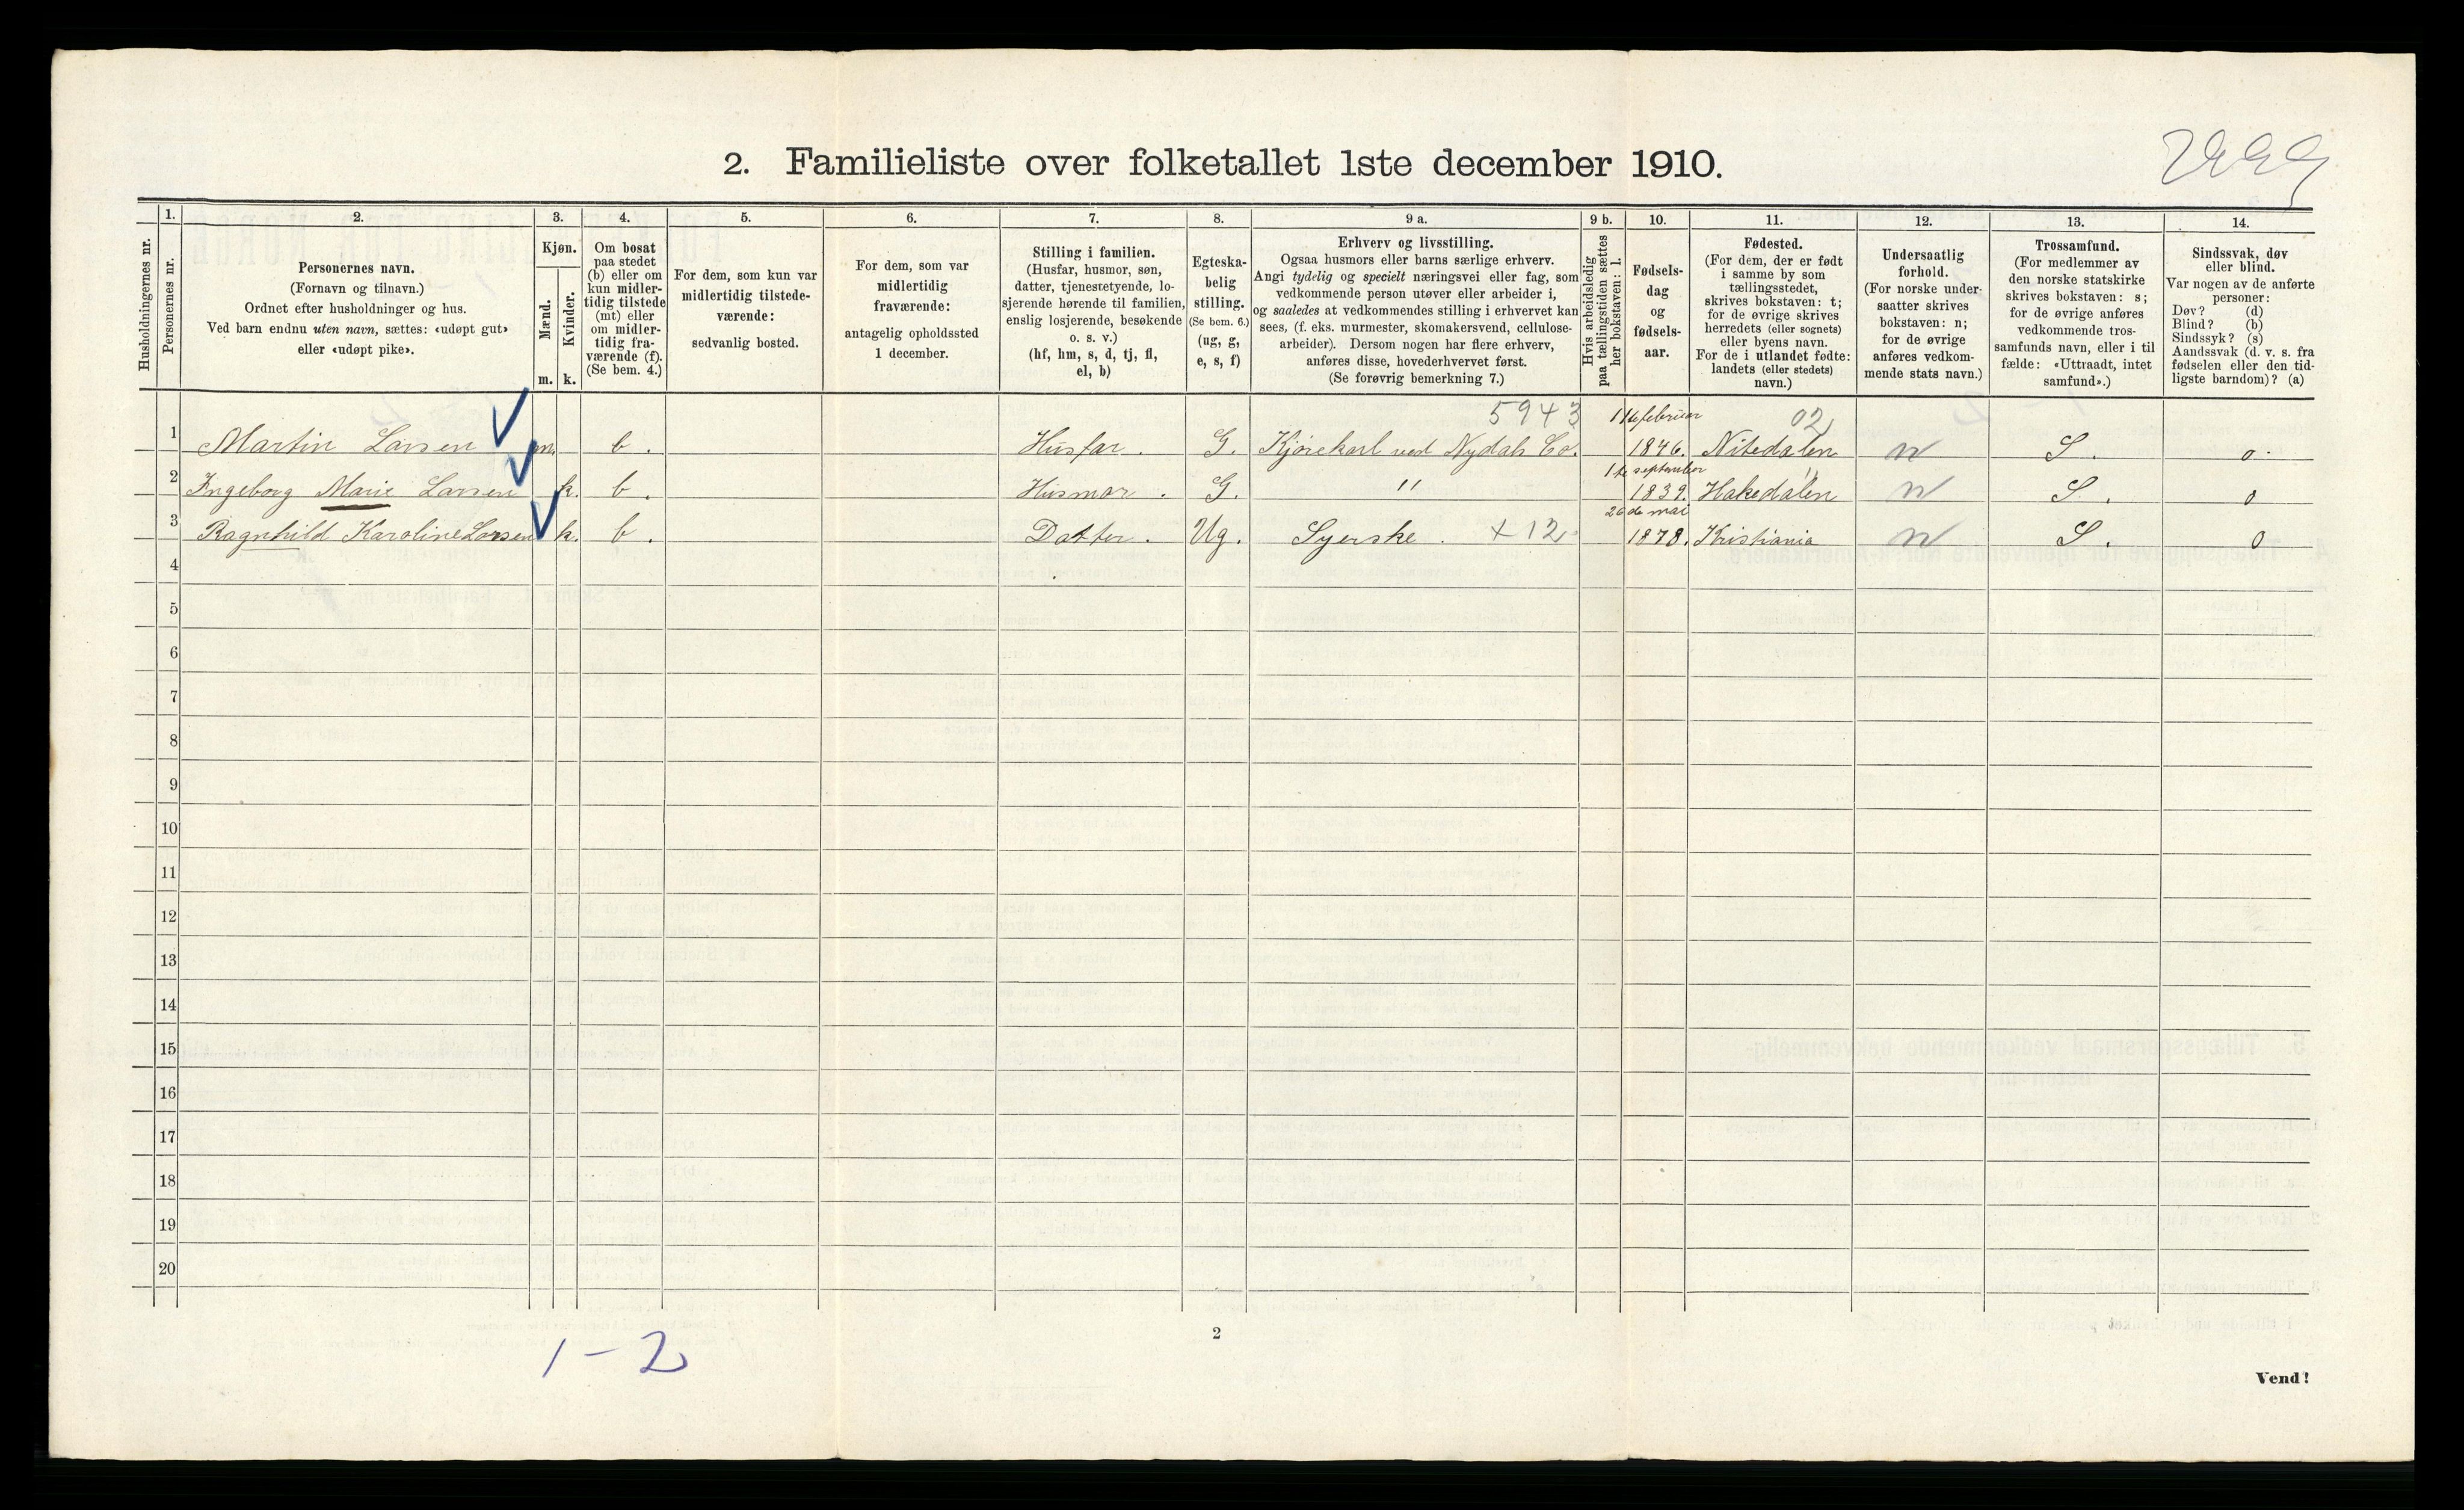 2. Familieliste over folketallet 1ste december 1910.
Husholdningernes nr.
1.
Personernes nr.
2.
Personernes navn.
(Fornavn og tilnavn.)
Ordnet efter husholdninger og hus.
Ved barn endnu uten navn, sættes: «udøpt gut»
eller «udøpt pike».
3.
Kjøn.
Mænd.
Kvinder.
m. k.
4.
Om bosat
paa stedet
(b) eller om
kun midler-
tidig tilstede
(mt) eller
om midler-
tidig fra-
værende (f).
(Se bem. 4.)
5.
For dem, som kun var
midlertidig tilstede-
værende:
sedvanlig bosted.
6.
For dem, som var
midlertidig
fraværende:
antagelig opholdssted
1 december.
7.
Stilling i familien.
(Husfar, husmor, søn,
datter, tjenestetyende, lo-
sjerende hørende til familien,
enslig losjerende, besøkende
o. s. v.)
(hf, hm, s, d, tj, fl,
el, b)
8.
Egteska-
belig
stilling.
(Se bem. 6.)
(ug, g,
e, s, f)
9 a.
Erhverv og livsstilling.
Ogsaa husmors eller barns særlige erhverv.
Angi tydelig og specielt næringsvei eller fag, som
vedkommende person utøver eller arbeider i,
og saaledes at vedkommendes stilling i erhvervet kan
sees, (f. eks. murmester, skomakersvend, cellulose-
arbeider). Dersom nogen har flere erhverv,
anføres disse, hovederhvervet først.
(Se forøvrig bemerkning 7.)
9 b.
Hvis arbeidsledig
paa tællingstiden sættes
her bokstaven: l.
10.
Fødsels-
dag
og
fødsels-
aar.
11.
Fødested.
(For dem, der er født
i samme by som
tællingsstedet,
skrives bokstaven: t;
for de øvrige skrives
herredets (eller sognets)
eller byens navn.
For de i utlandet fødte:
landets (eller stedets)
navn.)
12.
Undersaatlig
forhold.
(For norske under-
saatter skrives
bokstaven: n;
for de øvrige
anføres vedkom-
mende stats navn.)
13.
Trossamfund.
(For medlemmer av
den norske statskirke
skrives bokstaven: s;
for de øvrige anføres
vedkommende tros-
samfunds navn, eller i til
fælde: «Uttraadt, intet
samfund».)
14.
Sindssvak, døv
eller blind.
Var nogen av de anførte
personer:
Døv? (d)
Blind? (b)
Sindssyk? (s)
Aandssvak (d. v. s. fra
fødselen eller den tid-
ligste barndom)? (a)
5943 februar 02
1 Martin Larsen m. b. Husfar. G. Kjørekarl ved Nydals Co. 1846. Nitedalen n S. o.
september "
2 Ingeborg Marie Larsen k. b. Husmor. G. " 1839. Hakedalen n S. o
26de mai
3 Ragnhild Karoline Larsen k. b. Datter. Ug. Syerske. +12 1878. Kristiania n S. o
4
5
6
7
8
9
10
11
12
13
14
15
16
17
18
19
20
1-2
2
Vend!